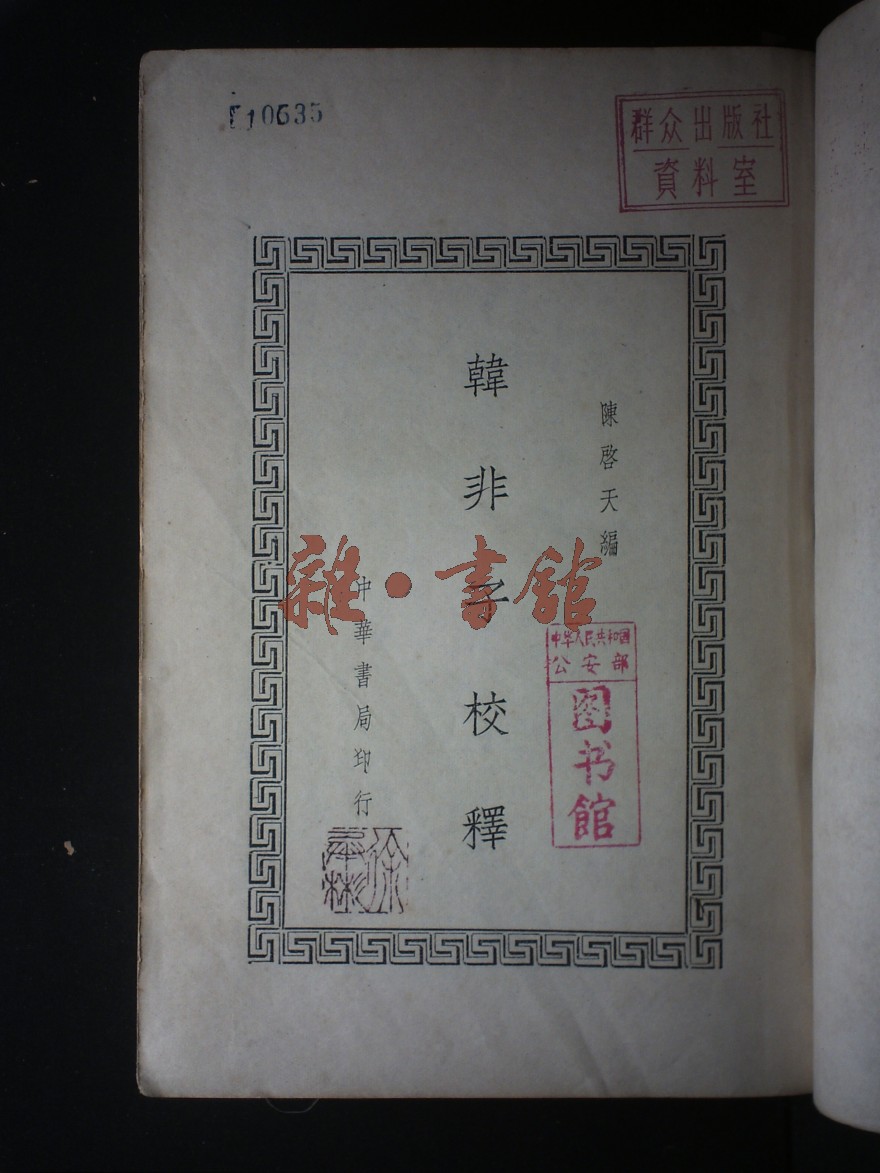 10635
群众出版社
資料室
陳啓天編
韓非子校釋
中華書局印行
雜·書館
中华人民共和国
公安部
图书馆